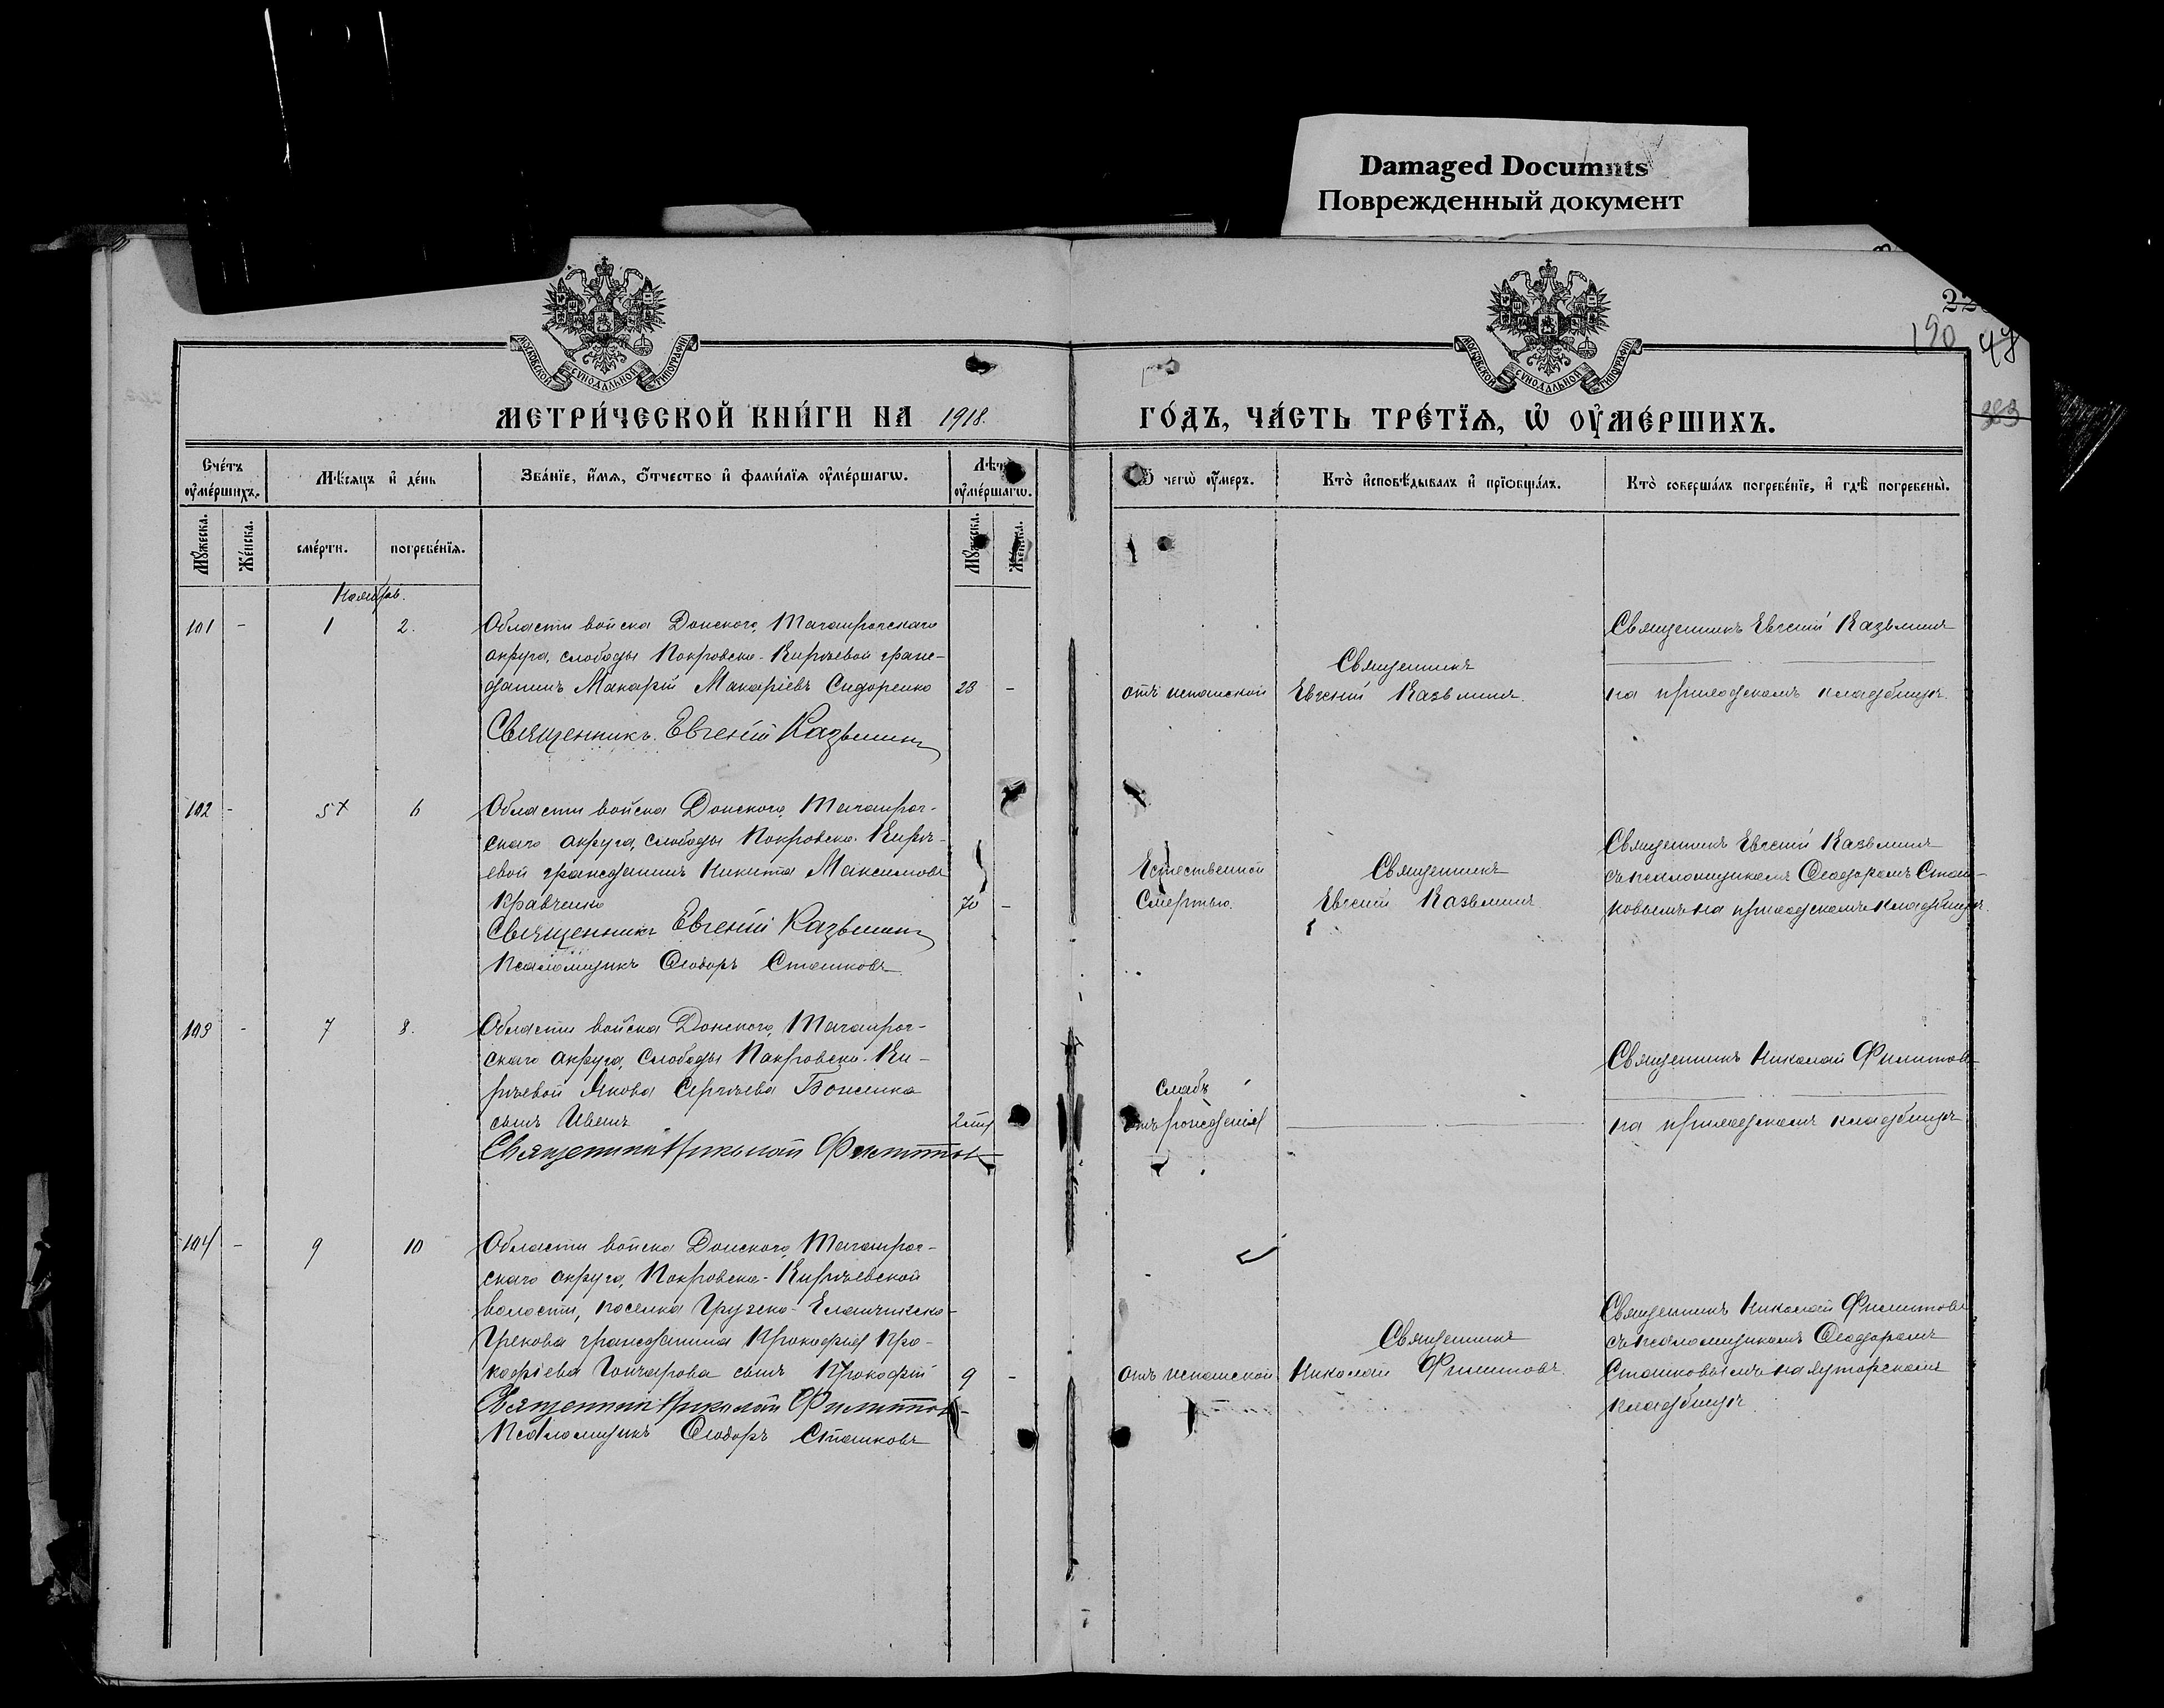 Damaged Documnts
Поврежденный документ
190 47
383
МОСКОВСКОЙ СУНОДАЛЬНОЙ ТИПОГРАФІИ
МОСКОВСКОЙ СУНОДАЛЬНОЙ ТИПОГРАФІИ
МЕТРИ́ЧЕСКОЙ КНИ́ГИ НА 1918.
ГО́ДЪ, ЧА́СТЬ ТРЕ́ТЇѦ, Ѡ҆ ОУ҆МЕ́РШИХЪ.
Счéтъ оу҆мéршихъ.
Мѣ́сяцъ и҆ дéнь
Звáнїе, и҆́мѧ, ѻ҆́тчество и҆ фамѝлїѧ оу҆мéршагѡ.
Лѣт оу҆мéршагѡ.
Ѿ чегѡ̀ оу҆́меръ.
Ктò и҆сповѣ́дывалъ и҆ прїѡбщáлъ.
Ктò совершáлъ погребéнїе, и҆ гдѣ̀ погребены̀.
Мꙋ́жеска.
Жéнска.
смéрти.
погребéнїѧ.
Мꙋ́жеска.
Жéнска.
Ноября.
101 - 1 2.
Области войска Донского, Таганрогскаго
округа, слободы Покровско-Кирѣевой граж-
данинъ Макарій Макаріевъ Сидоренко 28 -
Священникъ Евгеній Казьмин
отъ испанской
Священникъ
Евгеній Казьминъ
Священникъ Евгеній Казьминъ
на приходскомъ кладбищѣ.
102 - 5 6
Области войска Донского, Таганрог-
скаго округа, слободы Покровско-Кирѣ-
евой гражданинъ Никита Максимовъ
Кравченко 70 -
Священникъ Евгеній Казьмин
Псаломщикъ Ѳеодоръ Сташковъ
Естественной
Смертью.
Священникъ
Евгеній Казьминъ
Священникъ Евгеній Казьминъ
съ псаломщикомъ Ѳеодоромъ Сташ-
ковымъ на приходскомъ кладбищѣ.
103 - 7 8.
Области войска Донского, Таганрог-
скаго округа, слободы Покровско-Ки-
рѣевой Якова Сергѣева Боженка
сынъ Иванъ
Священникъ Николай Филиппов
Слабъ
отъ рожденія
Священникъ Николай Филипповъ
на приходскомъ кладбищѣ
104 - 9 10
Области войска Донского, Таганрог-
скаго округа, Покровско-Кирѣевской
волости, поселка Грузско-Еланчикско-
Грекова гражданина Прокофія Про-
кофіева Гончарова сынъ Прокофій 9 -
Священникъ Николай Филиппов
Псаломщикъ Ѳеодоръ Сташковъ
отъ испанской
Священникъ
Николай Филипповъ.
Священникъ Николай Филипповъ
съ псаломщикомъ Ѳеодоромъ
Сташковымъ на хуторскомъ
кладбищѣ.